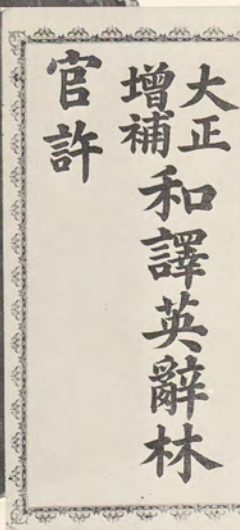 大正
增補
和譯英辭林
官許